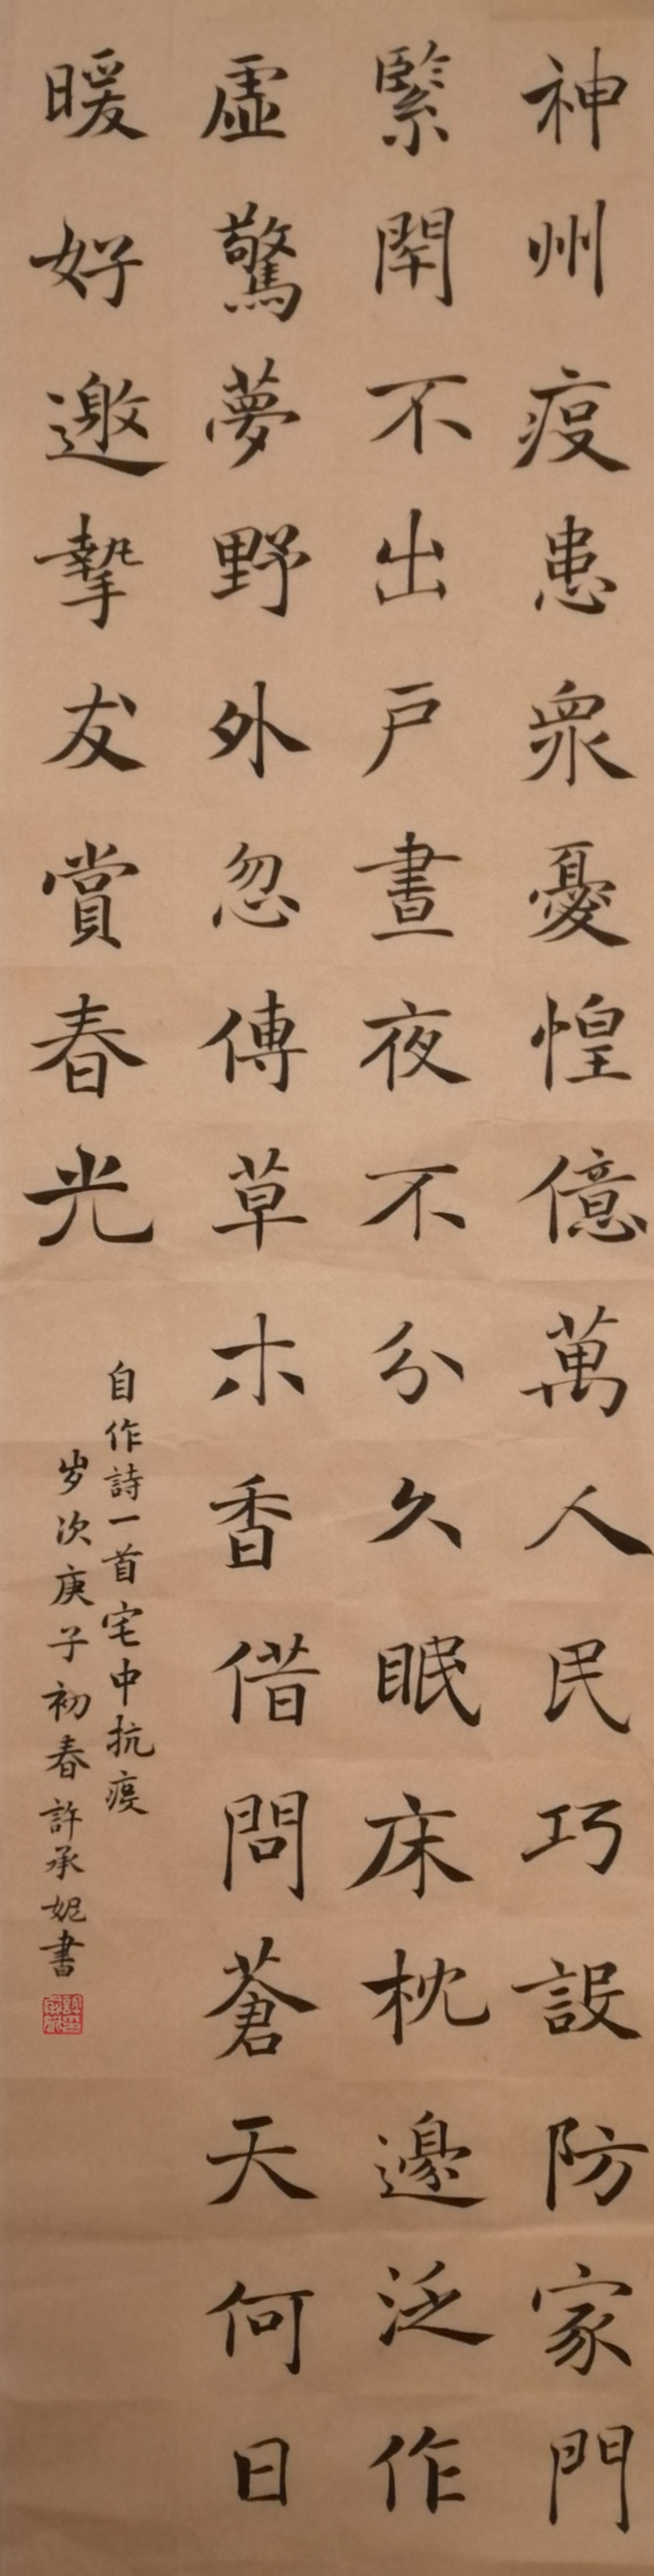 神州疫患衆憂惶億萬人民巧設防家門
緊閉不出戸晝夜不分久眠床枕邊泛作
虛驚夢野外忽傳草木香借問蒼天何日
暖好邀摯友賞春光
自作詩一首宅中抗疫
岁次庚子初春許承妮書